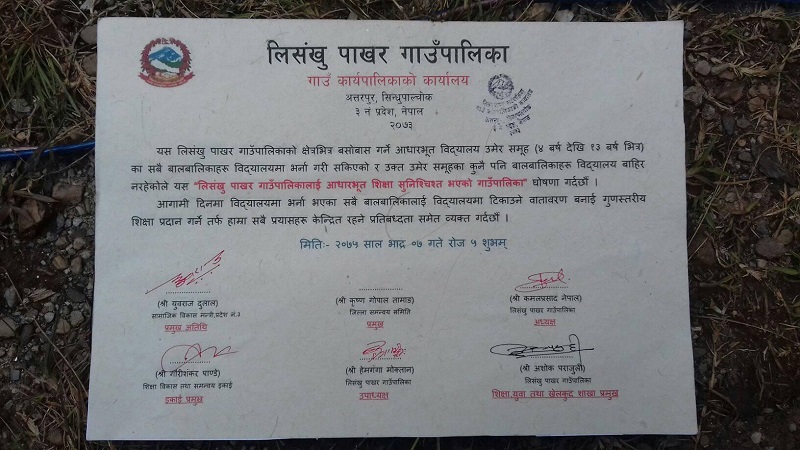 लिसंखु पाखर गाउँपालिका
गाउँ कार्यपालिकाको कार्यालय
अत्तरपुर, सिन्धुपाल्चोक
३ नं प्रदेश, नेपाल
२०७३
यस लिसंखु पाखर गाउँपालिकाको क्षेत्रभित्र बसोबास गर्ने आधारभूत विद्यालय उमेर समूह (४ बर्ष देखि १३ बर्ष भित्र)
का सबै बालबालिकाहरू विद्यालयमा भर्ना गरी सकिएको र उक्त उमेर समूहका कुनै पनि बालबालिकाहरू विद्यालय बाहिर
नरहेकोले यस "लिसंखु पाखर गाउँपालिकालाई आधारभूत शिक्षा सुनिश्चिश्त भएको गाउँपालिका" घोषणा गर्दछौँ ।
आगामी दिनमा विद्यालयमा भर्ना भएका सबै बालबालिकालाई विद्यालयमा टिकाउने वातावरण बनाई गुणस्तरीय
शिक्षा प्रदान गर्ने तर्फ हाम्रा सबै प्रयासहरू केन्द्रित रहने प्रतिबध्दता समेत व्यक्त गर्दछौँ ।
मितिः- २०७५ साल भाद्र ०७ गते रोज ५ शुभम्
(श्री युवराज दुलाल)
सामाजिक विकास मन्त्री,प्रदेश नं.३
प्रमुख अतिथि
(श्री कृष्ण गोपाल तामाङ)
जिल्ला समन्वय समिति
प्रमुख
(श्री कमलप्रसाद नेपाल)
लिसंखु पाखर गाउँपालिका
अध्यक्ष
(श्री गौरीशंकर पाण्डे)
शिक्षा विकास तथा समन्वय इकाई
इकाई प्रमुख
(श्री हेमगंगा मोक्तान)
लिसंखु पाखर गाउँपालिका
उपाध्यक्ष
(श्री अशोक पराजुली)
लिसंखु पाखर गाउँपालिका
शिक्षा,युवा तथा खेलकुद शाखा प्रमुख